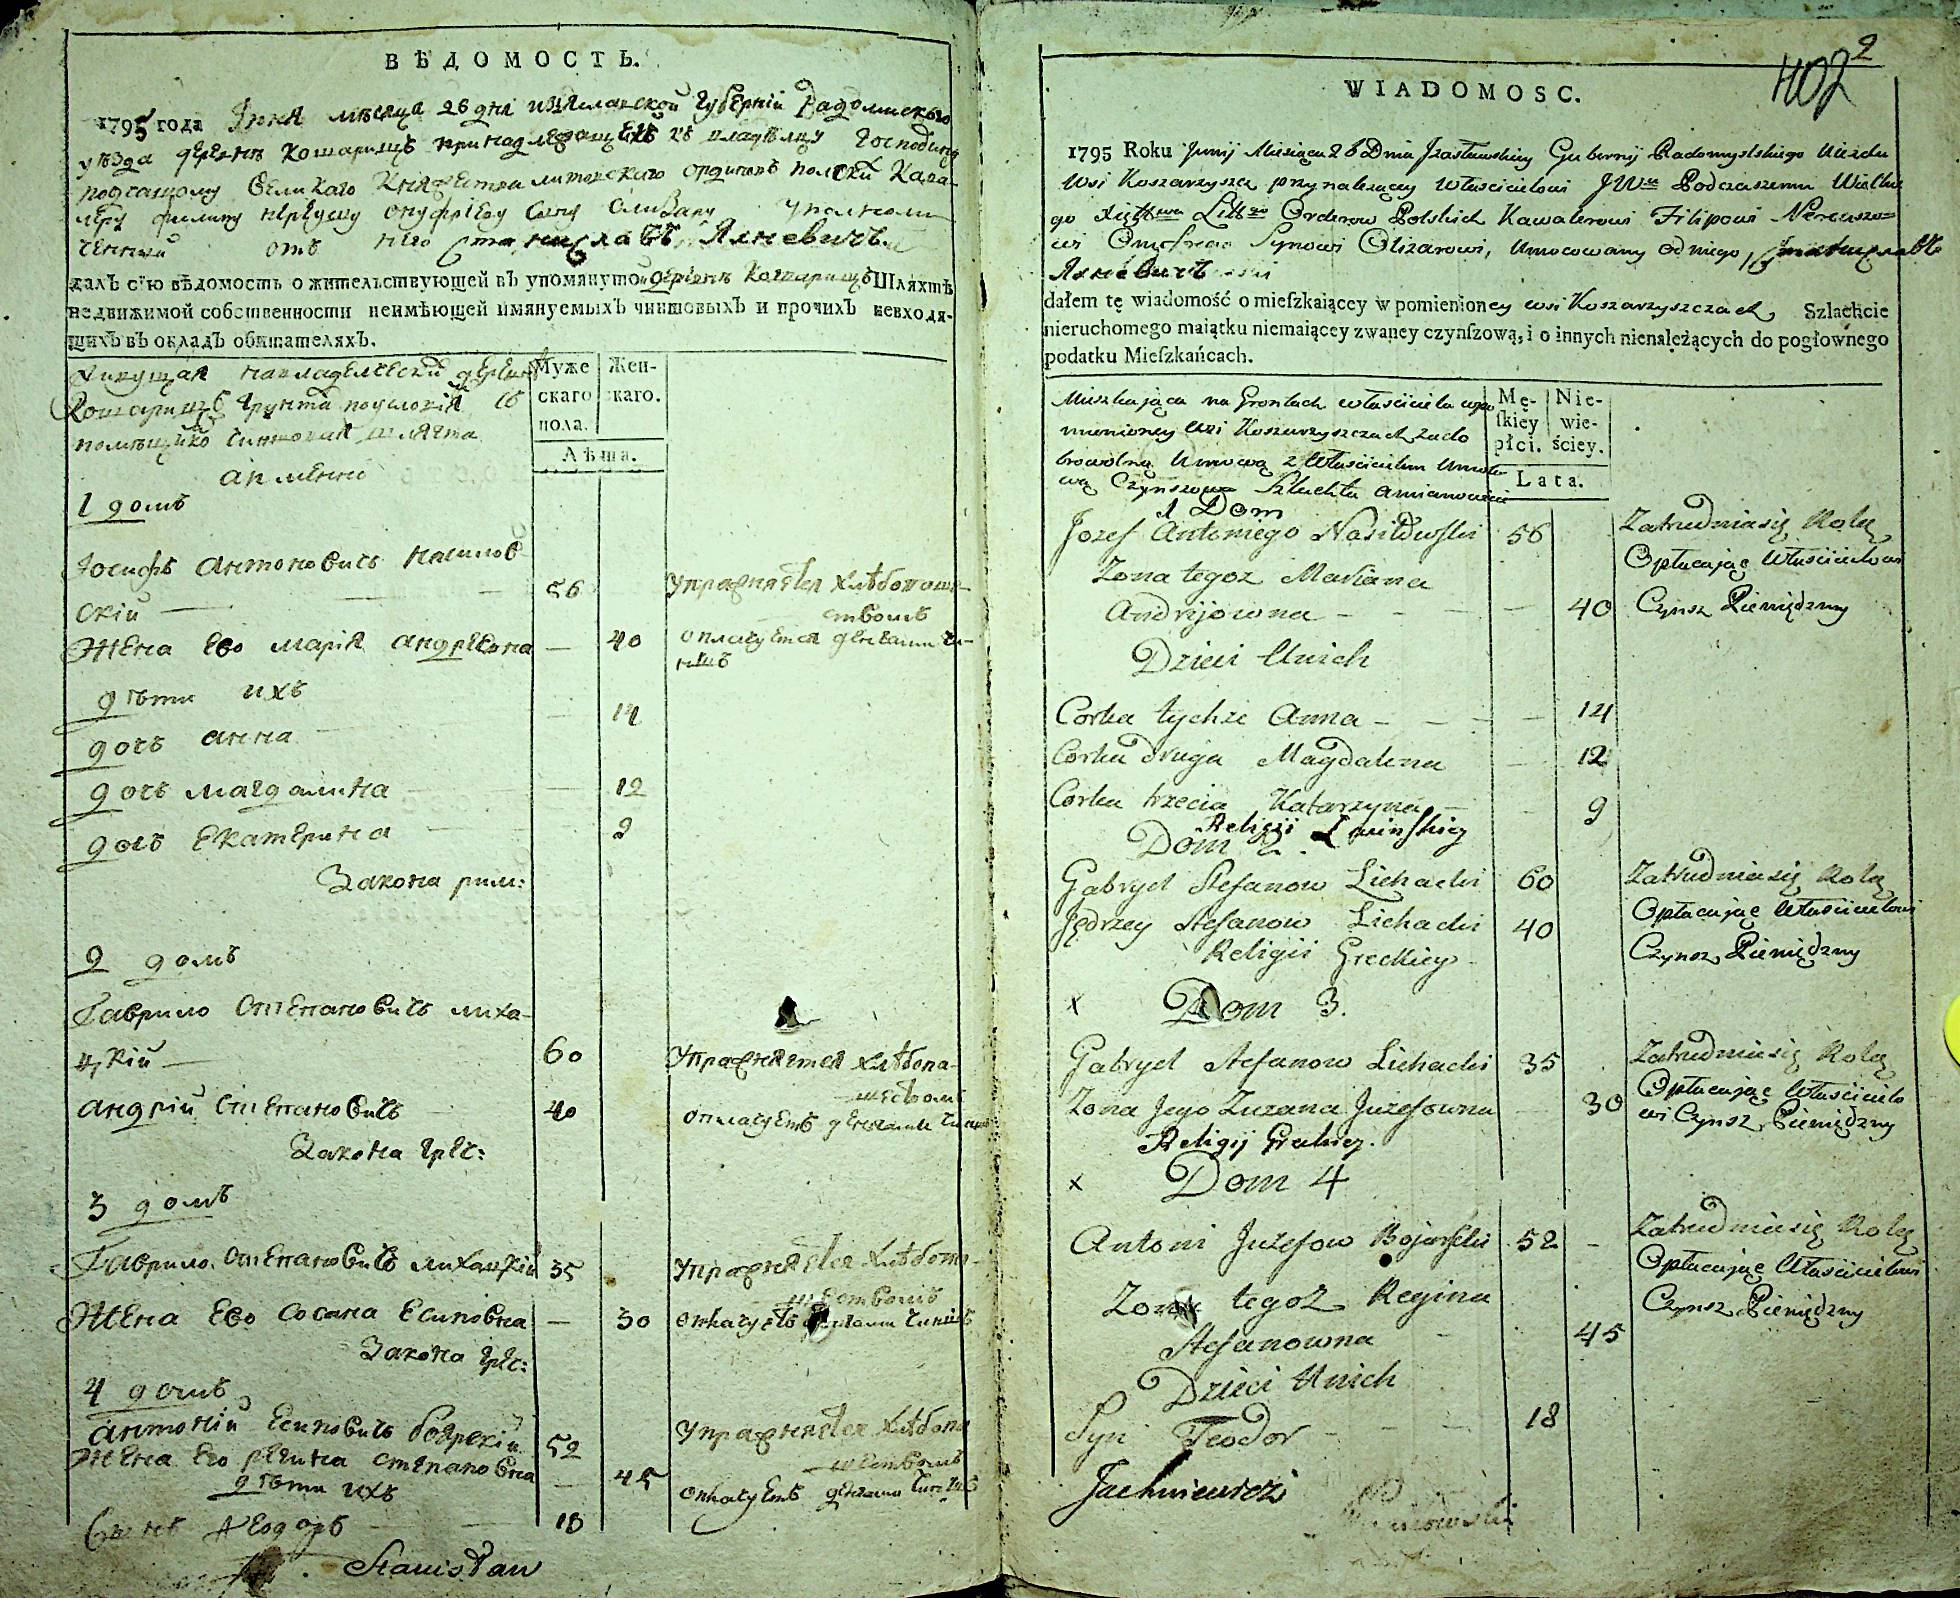 ВѢДОМОСТЬ.
1795 года Іюня мѣсяца 26 дня Изяславской Губерніи Радомыского
уѣзда деревнѣ Кошарищѣ принадлежащѣй владѣлцу Господину
подчашому Великаго Княжества литовского ординовъ полскихъ Кава-
леру филипу нереушу онуфріеву сыну Олизару уполномо-
ченный отъ него Станиславъ Яхневичъ
далъ сію вѣдомость о жительствующей въ упомянутой деревнѣ Кошарищѣ Шляхтѣ
недвижимой собственности неимѣющей имянуемыхъ чиншовыхъ и прочихъ невходя-
щихъ въ окладъ обитателяхъ.
Живущая на владелческой деревнѣ
Кошарищѣ Грунта по условія съ
помѣщико чиншовая шляхта
а имѣнно
Муже
скаго
пола.
Жен-
скаго.
Лѣта.
1 домъ
Іосифъ Антоновичъ Насилов-
скій 56 Упражняется хлѣбопаше-
ствомъ
Жена Его Марія Андрѣевна 40 оплачуется денгами чи-
ншъ
дѣти ихъ
дочь Анна 14
дочь Магдалина 12
дочь Екатерина 9
Закона рим:
2 домъ
Гаврило Степановичъ лиха-
цкій 60 Упражняется хлѣбопа-
шествомъ
андрій Степановичъ 40 оплачуетъ денгами чиншъ
Закона Грѣч:
3 домъ
Гаврило Степановичъ лихацкій 35 Упражняется хлѣбопа-
шествомъ
Жена Его Сосана Есиповна 30 оплачуетъ денгами чиншъ
Закона Грѣч:
4 домъ
Антоній Есиповичъ боярскій 52 Упражняется хлѣбопа-
шествомъ
Жена Его Регина Степановна 45 оплачуетъ денгами чиншъ
дѣти ихъ
Сынъ Ѳеодоръ 18
Stanisław
402 2
WIADOMOSC.
1795 Roku Junij Miesiąca 26 Dnia Jzasławskiey Gubernij Radomyslskiego Uiezdu
Wsi Koszarzyszcz przynalezącey Włascicielowi JWu Podczaszemu Wielkie
go Xięstwa Litt Orderow Polskich Kawalerowi Filipowi Nereuszo=
wi Onufrego Synowi Olizarowi, Umocowany od niego, Станиславъ
Яхневичъ
dałem tę wiadomość o mieſzkaiącey w pomienioney wsi Koszarzyszczach Szlachcie
nieruchomego maiątku niemaiącey zwaney czynſzową, i o innych nienależących do pogłownego
podatku Mieſzkańcach.
Mieszkająca na Grontach właściciela wspo
mnioney wsi Koszarzyszczach za do
browolną Umową z Włascicielem Umoco
wą Czynszowa Szlachta amianowicie
Mę-
ſkiey
płci.
Nie-
wie-
ściey.
Lata.
1 Dom
Jozef Antoniego Nasiłowski 56 Zatrudniasię Rolą
Opłacając Włascicielowi
Zona tegoz Mariana
Andrijowna 40 Czynsz Pieniędzmy
Dzieci Unich
Corka tychze Anna 14
Corka druga Magdalena 12
Corka trzecia Katarzyna 9
Religii Łacinskiey
Dom 2.
Gabryel Stefanow Lichacki 60 Zatrudniasię Rolą
Jędrzey Stefanow Lichacki 40 Opłacając Włascicielowi
Religii Greckiey Czynsz Pieniędzmy
x Dom 3.
Gabryel Stefanow Lichacki 35 Zatrudniasię Rolą
Opłacając Właściciclo
Zona Jego Zuzana Juzefowna 30 wi Czynsz Pieniędzmy
Religij Grekiey.
x Dom 4
Antoni Juzefow Bojarski 52 Zatrudniasię Rolą
Opłacając Włascicielowi
Zona tegoz Regina Czynsz Pieniędzmy
Stefanowna 45
Dzieci Unich
Syn Teodor 18
Jachniewicz